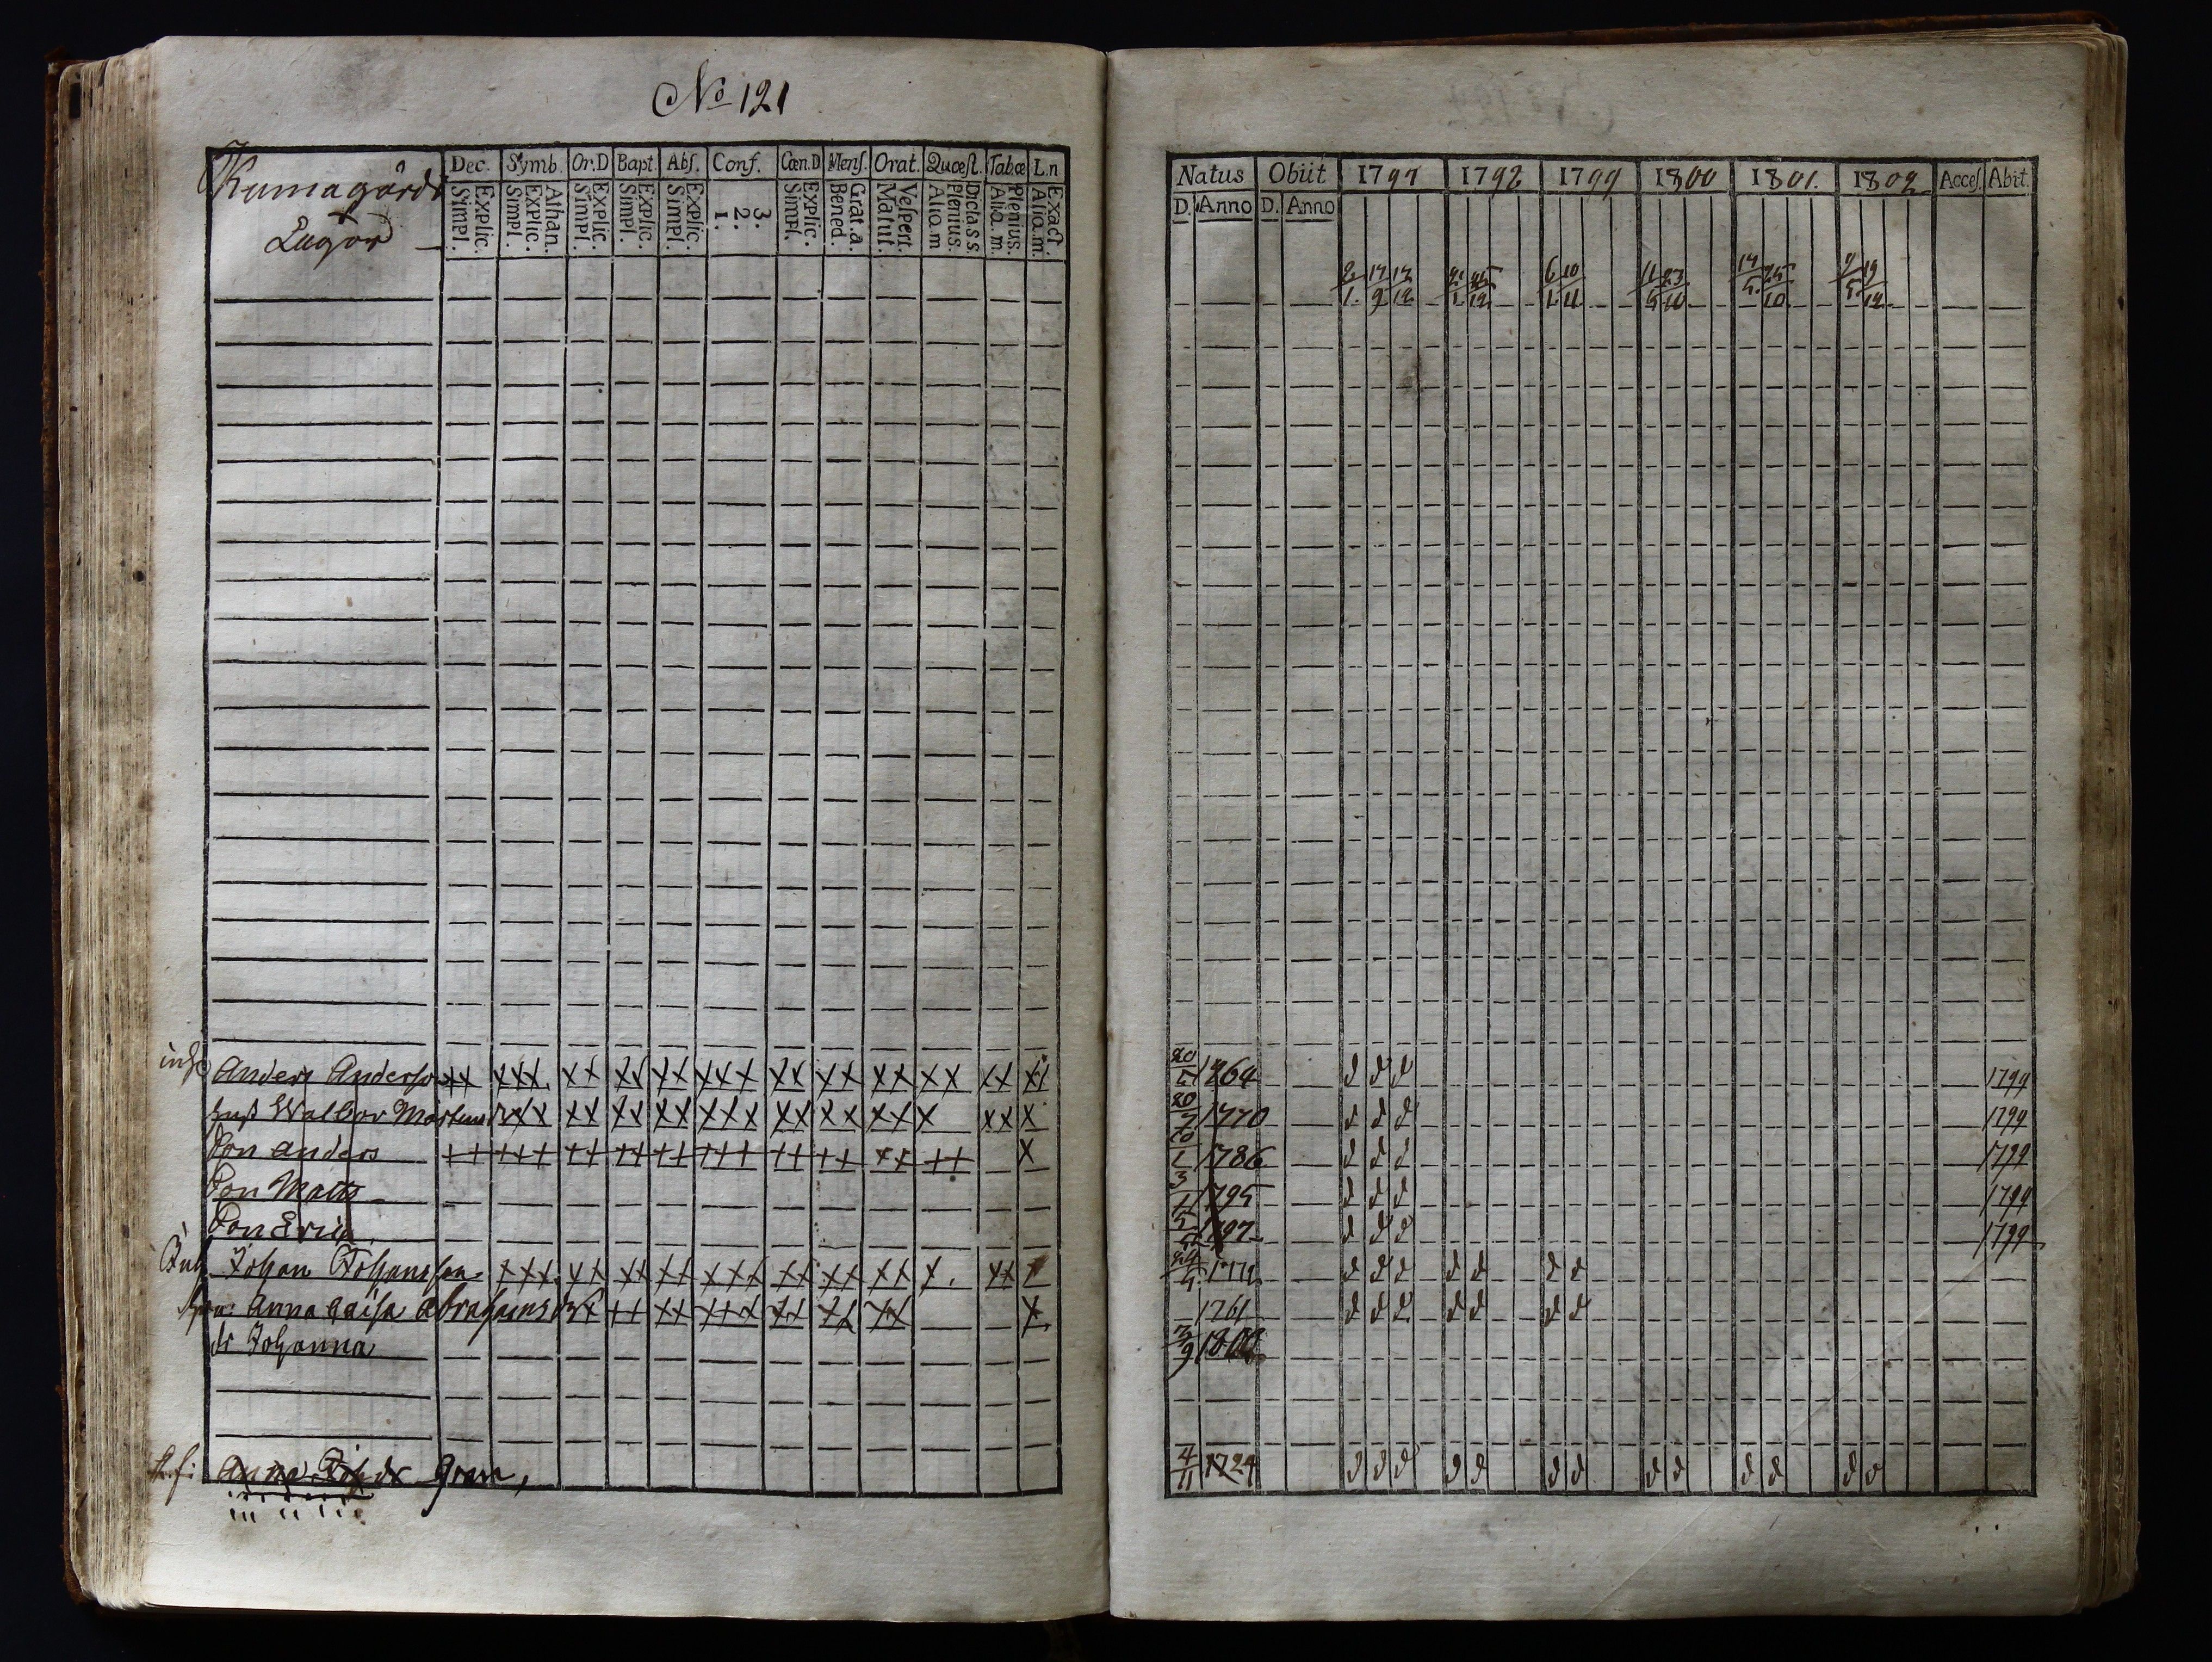 No 121
Kumagårds
Lagård
Dec. Symb. Or.D Bapt. Abs. Conf. Cœn.D Mens. Orat. Quæst. Tab.œ L.n
Explic. Simpl. Athan. Explic. Simpl. Explic. Simpl. Explic. Simpl. Explic. Simpl. 3. 2. 1. Explic. Simpl. Grat.a. Bened. Vespert. Matut. Dicta s s. Plenius. Aliq.m Plenius. Aliq.m. Exact. Aliq.m.
Anders Anderson xx xxx xx xx xx xxx xx xx xx xx xx
hust Walbor Mårtens xxx xx xx xx xxx xx xx xx x xx x
Son Anders ++ +++ ++ ++ ++ +++ ++ ++ xx ++ x
Son Matts
Son Eric
Inh Johan Johansson xxx xx xx xx xxx xx xx xx x. xx
Anna Caisa Abrahams dr ++ xx xx xx x
dr Johanna
Anna Joh dr Gran,
Natus Obiit 1797 1798 1799 1800 1801. 1802 Acces. Abit.
D. Anno D. Anno
2/1 17/9 17/12 6/1 10/11 11/5 23/10 25/10 19/12
20/5 1764 d d d 1799
20/7 1770 d d d 1799
1786 d d d 1799
3/ 1795 d d d 1799
5/5 1797 d d d 1799
24/ 177 d d d d d d d
1761 d d d d d d d
/9 1800
4/11 1724 d d d d d d d d d d d d d